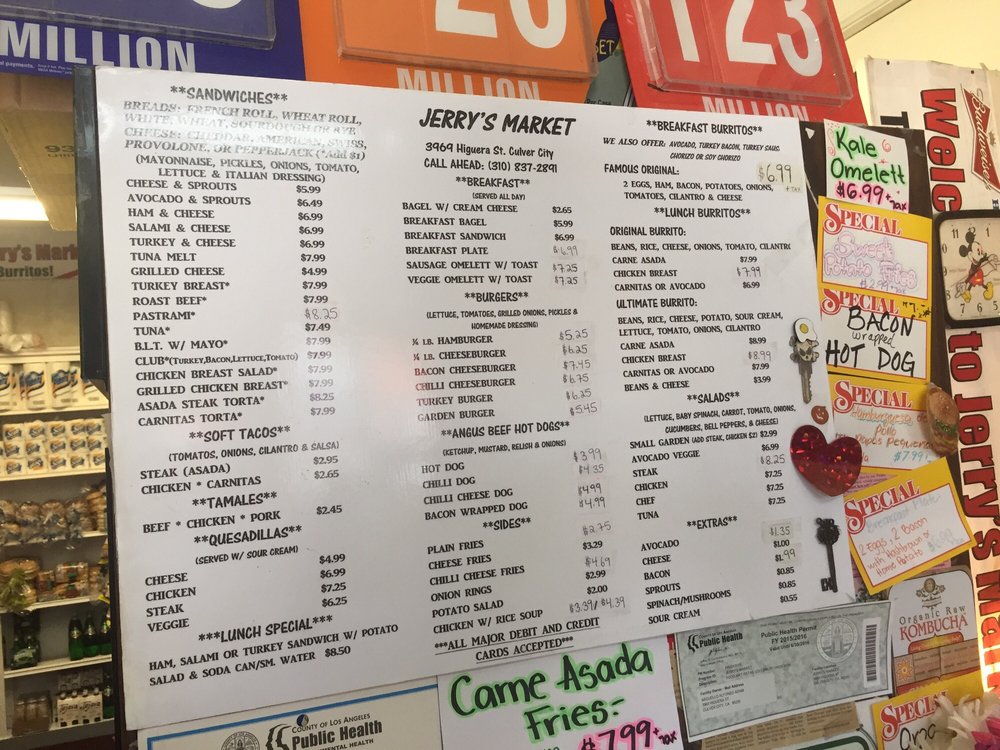 MILLION
MILLION
MILLION
123
**SANDWICHES**
BREADS: FRENCH ROLL, WHEAT ROLL,
WHITE, WHEAT, SOURDOUGH OR RYE
CHEESE: CHEDDAR, AMERICAN, SWISS,
PROVOLONE, OR PEPPERJACK (*Add $1)
(MAYONNAISE, PICKLES, ONIONS, TOMATO,
LETTUCE & ITALIAN DRESSING)
CHEESE & SPROUTS $5.99
AVOCADO & SPROUTS $6.49
HAM & CHEESE $6.99
SALAMI & CHEESE $6.99
TURKEY & CHEESE $6.99
TUNA MELT $7.99
GRILLED CHEESE $4.99
TURKEY BREAST* $7.99
ROAST BEEF* $7.99
PASTRAMI* $8.25
TUNA* $7.49
B.L.T. W/ MAYO* $7.99
CLUB*(TURKEY,BACON,LETTUCE,TOMATO) $7.99
CHICKEN BREAST SALAD* $7.99
GRILLED CHICKEN BREAST* $7.99
ASADA STEAK TORTA* $8.25
CARNITAS TORTA* $7.99
**SOFT TACOS**
(TOMATOS, ONIONS, CILANTRO & SALSA)
STEAK (ASADA) $2.95
CHICKEN * CARNITAS $2.65
**TAMALES**
BEEF * CHICKEN * PORK $2.45
**QUESADILLAS**
(SERVED W/ SOUR CREAM)
CHEESE $4.99
CHICKEN $6.99
STEAK $7.25
VEGGIE $6.25
***LUNCH SPECIAL***
HAM, SALAMI OR TURKEY SANDWICH W/ POTATO
SALAD & SODA CAN/SM. WATER $8.50
JERRY'S MARKET
3969 Higuera St. Culver City
CALL AHEAD: (310) 837-2891
**BREAKFAST**
(SERVED ALL DAY)
BAGEL W/ CREAM CHEESE $2.65
BREAKFAST BAGEL $5.99
BREAKFAST SANDWICH $6.99
BREAKFAST PLATE $6.99
SAUSAGE OMELETT W/ TOAST $7.25
VEGGIE OMELETT W/ TOAST $7.25
**BURGERS**
(LETTUCE, TOMATOES, GRILLED ONIONS, PICKLES &
HOMEMADE DRESSING)
¼ LB. HAMBURGER $5.25
¼ LB. CHEESEBURGER $6.25
BACON CHEESEBURGER $7.45
CHILLI CHEESEBURGER $6.75
TURKEY BURGER $6.25
GARDEN BURGER $5.45
**ANGUS BEEF HOT DOGS**
(KETCHUP, MUSTARD, RELISH & ONIONS)
HOT DOG $3.99
CHILLI DOG $4.35
CHILLI CHEESE DOG $4.99
BACON WRAPPED DOG $4.99
**SIDES**
PLAIN FRIES $2.75
CHEESE FRIES $3.29
CHILLI CHEESE FRIES $4.69
ONION RINGS $2.99
POTATO SALAD $2.00
CHICKEN W/ RICE SOUP $3.39/$4.39
***ALL MAJOR DEBIT AND CREDIT
CARDS ACCEPTED***
**BREAKFAST BURRITOS**
WE ALSO OFFER: AVOCADO, TURKEY BACON, TURKEY SAUSG
CHORIZO OR SOY CHORIZO
FAMOUS ORIGINAL: $6.99
+ TAX
2 EGGS, HAM, BACON, POTATOES, ONIONS,
TOMATOES, CILANTRO & CHEESE
**LUNCH BURRITOS**
ORIGINAL BURRITO:
BEANS, RICE, CHEESE, ONIONS, TOMATO, CILANTRO
CARNE ASADA $7.99
CHICKEN BREAST $7.99
CARNITAS OR AVOCADO $6.99
ULTIMATE BURRITO:
BEANS, RICE, CHEESE, POTATO, SOUR CREAM,
LETTUCE, TOMATO, ONIONS, CILANTRO
CARNE ASADA $8.99
CHICKEN BREAST $8.99
CARNITAS OR AVOCADO $7.99
BEANS & CHEESE $3.99
**SALADS**
(LETTUCE, BABY SPINACH, CARROT, TOMATO, ONIONS,
CUCUMBERS, BELL PEPPERS, & CHEESE)
SMALL GARDEN (ADD STEAK, CHICKEN $2) $2.99
AVOCADO VEGGIE $6.99
STEAK $8.25
CHICKEN $7.25
CHEF $7.25
TUNA $7.25
**EXTRAS**
AVOCADO $1.35
CHEESE $1.00
BACON $1.99
SPROUTS $0.85
SPINACH/MUSHROOMS $0.85
SOUR CREAM $0.55
Kale
Omelett
$6.99 + tax
SPECIAL
Sweet
Potato Fries
$2.99 + tax
SPECIAL
BACON
wrapped
HOT DOG
SPECIAL
Hamburguesa de
Pollo
$7.99
SPECIAL
Breakfast Plate
2 Eggs, 2 Bacon
with Hashbrown or
Home Potato
Budweiser
Welc
to Jerry's Ma
Organic Raw
KOMBUCHA
SPECIAL
Public Health
Public Health Permit
FY 2015/2016
COUNTY OF LOS ANGELES
Public Health
Carne Asada
Fries:-
$7.99 + tax
rry's Mark
Burritos!